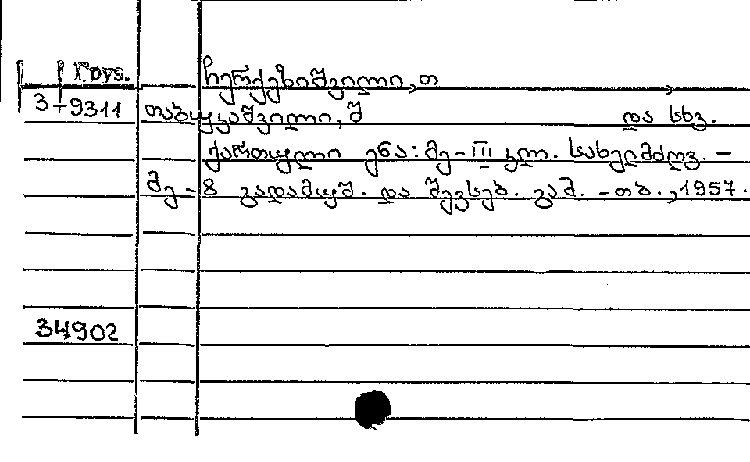 ჩერქეზიშვილი, თ
3-9311 და სხვ.
ქართული ენა: მე-III კლ. სახელმძღვ. –
მე-8 გადამუშ. და შევსებ. გამ. -თბ., 1957.
34902